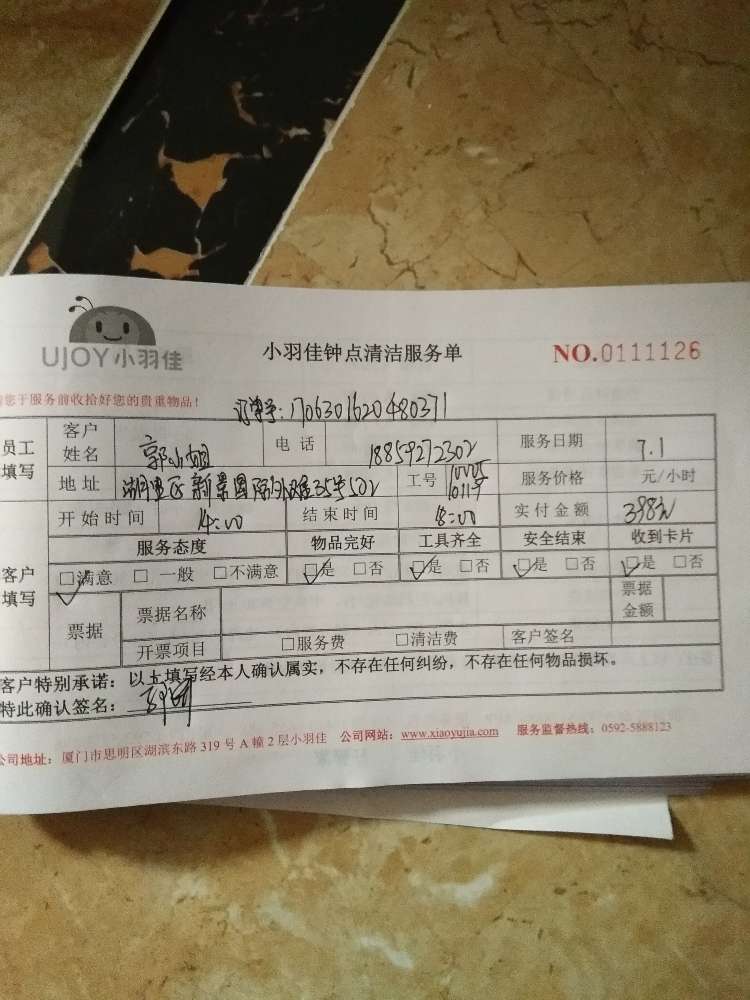 UJOY小羽佳
小羽佳钟点清洁服务单
NO.0111126
您于服务前收拾好您的贵重物品!
订单号:170630162048037​1
员工填写 客户姓名 郭小姐 电话 18859272302 服务日期 7.1
地址 湖里区新景国际外滩35号502 工号 服务价格 元/小时
开始时间 14:00 结束时间 18:00 实付金额 398元
服务态度 物品完好 工具齐全 安全结束 收到卡片
客户填写 □满意 □一般 □不满意 □是 □否 □是 □否 □是 □否 □是 □否
票据 票据名称 票据金额
开票项目 □服务费 □清洁费 客户签名
客户特别承诺:以上填写经本人确认属实,不存在任何纠纷,不存在任何物品损坏。
特此确认签名:
公司地址:厦门市思明区湖滨东路 319 号 A 幢 2 层小羽佳 公司网站:www.xiaoyujia.com 服务监督热线:0592-5888123